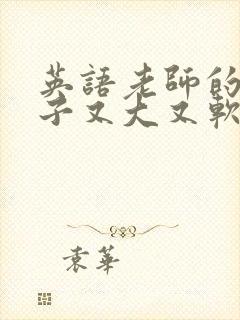 英語老師的
子又大又軟
袁華